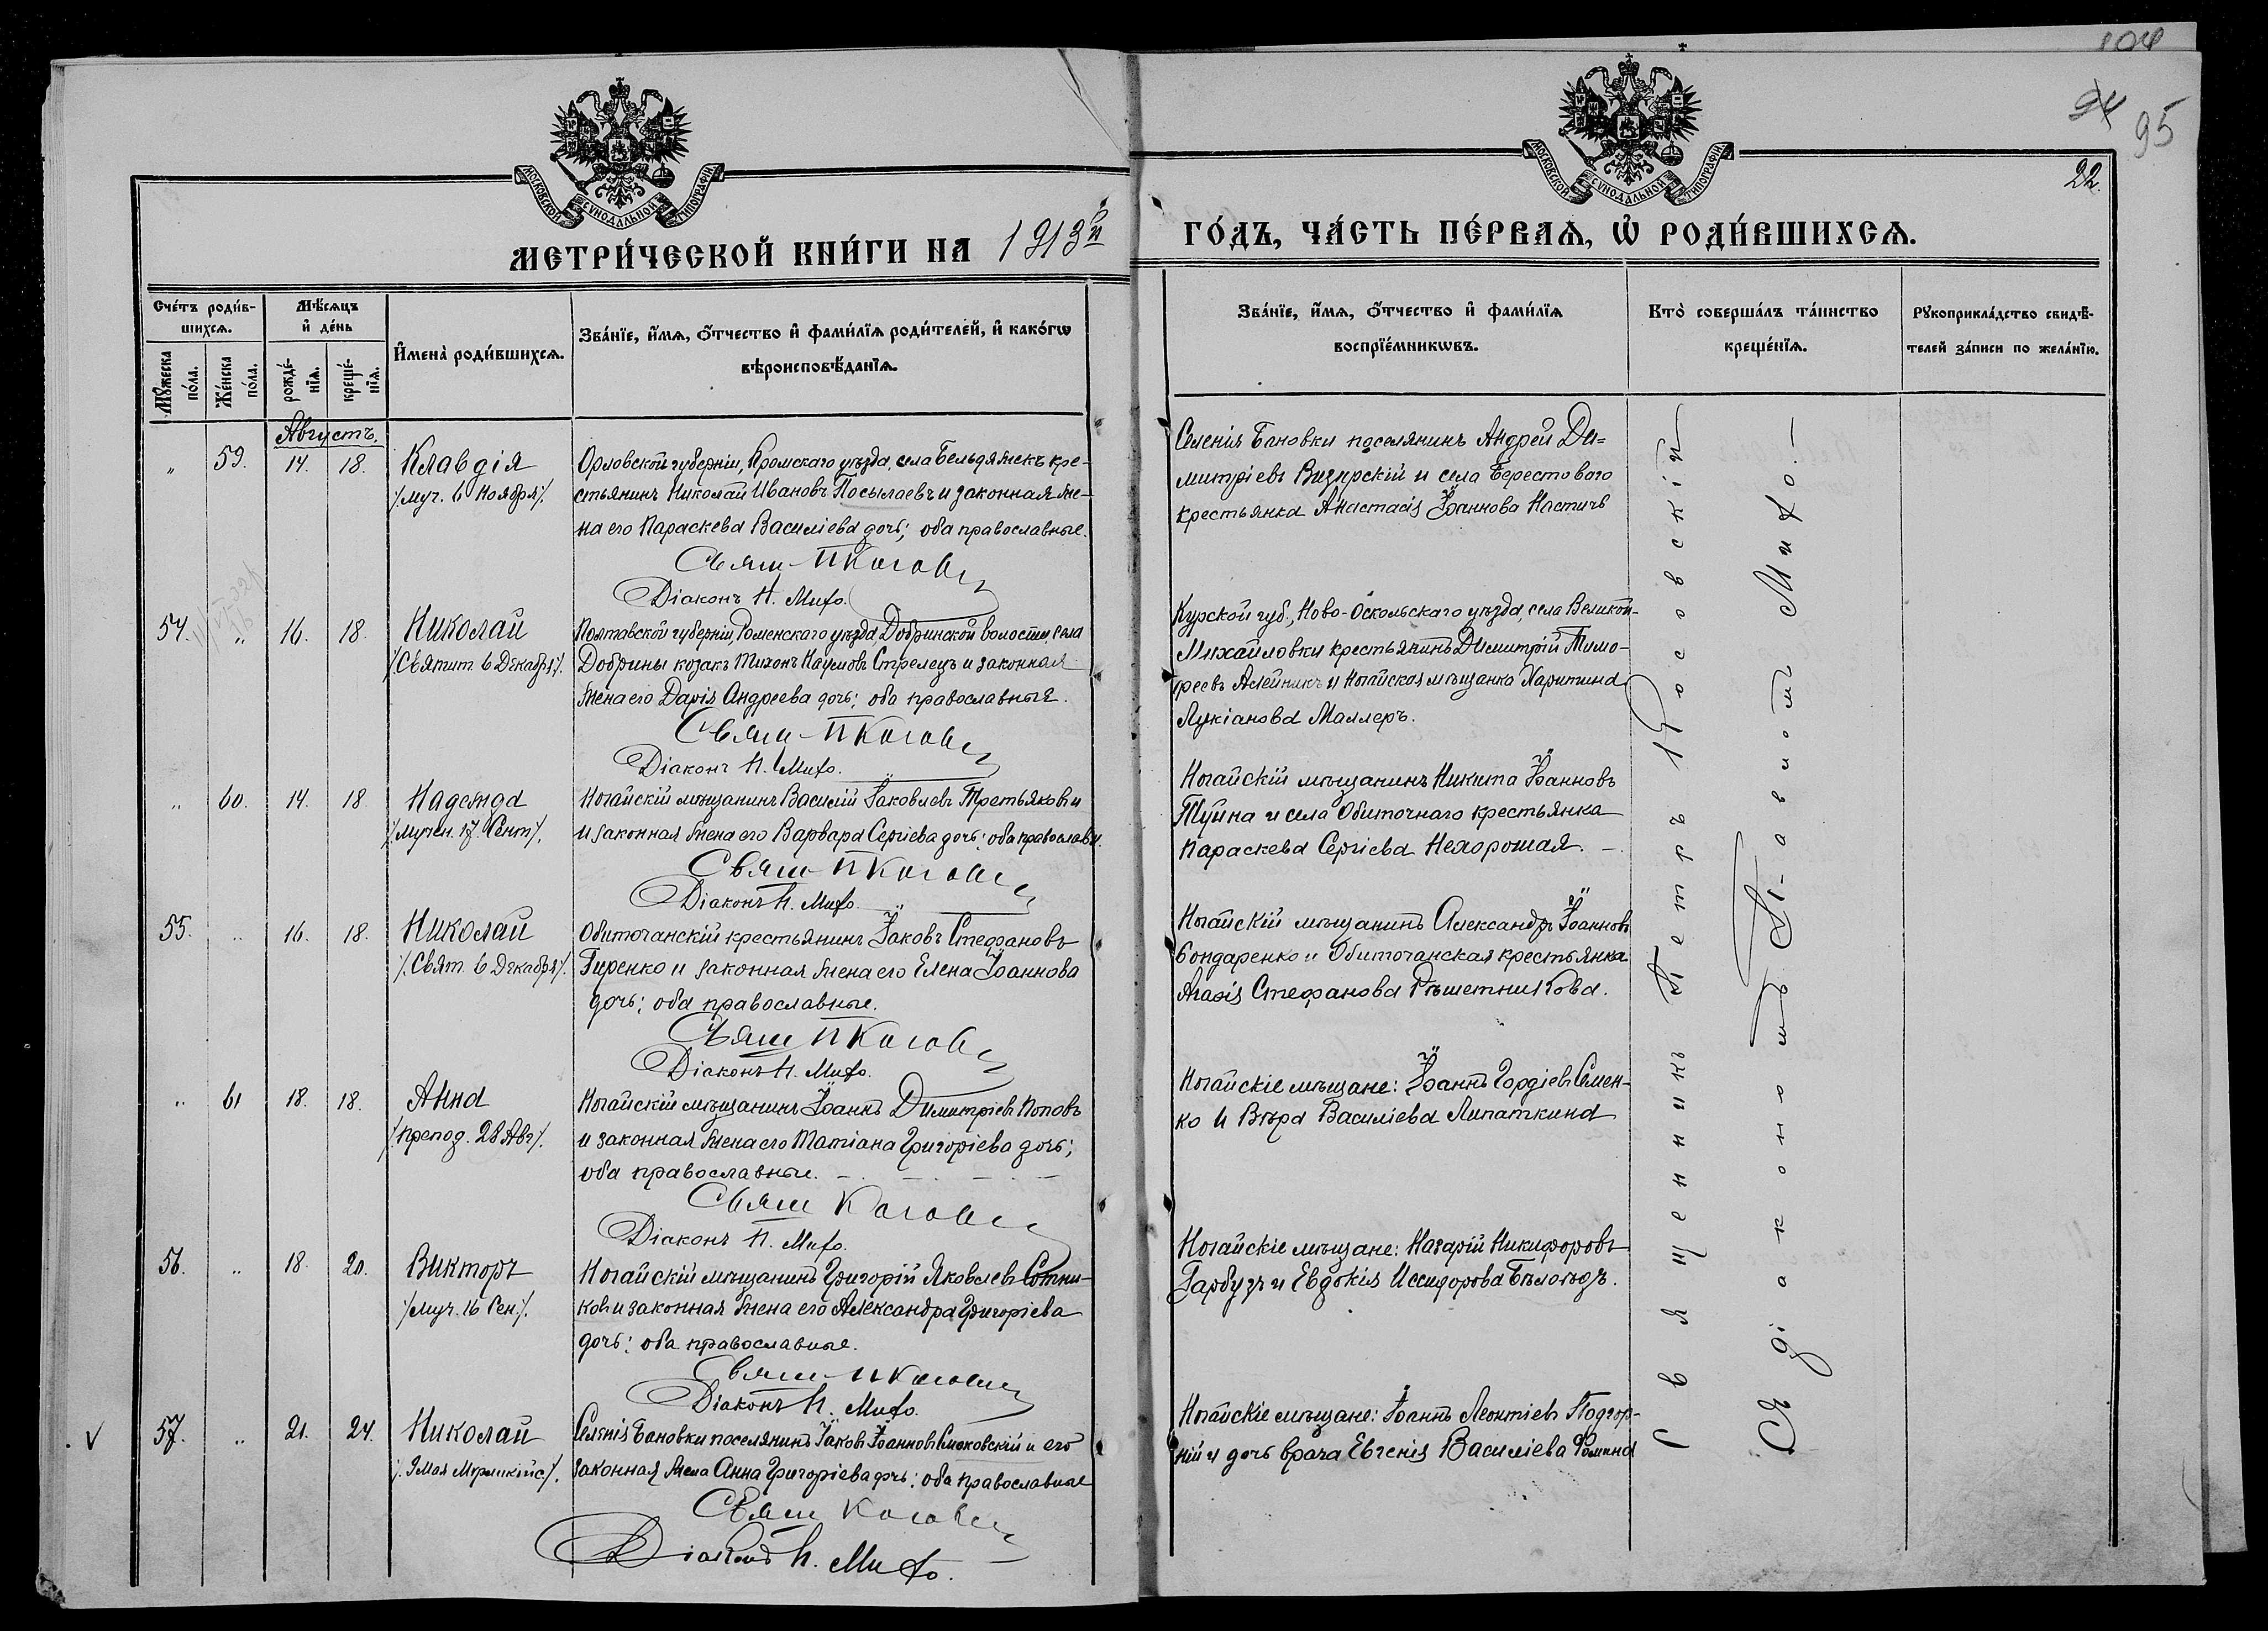 104
94 95
22.
МОСКОВСКОЙ СѴНОДАЛЬНОЙ ТИПОГРАФІИ
МОСКОВСКОЙ СѴНОДАЛЬНОЙ ТИПОГРАФІИ
МЕТРИ́ЧЕСКОЙ КНИ́ГИ НА 1913й
ГО́ДЪ, ЧА́СТЬ ПЕ́РВАѦ, Ѡ҆ РОДИ́ВШИХСѦ.
Сче́тъ роди́вшихсѧ.
Мꙋ́жеска по́ла.
Же́нска по́ла.
Мѣ́сѧцъ и҆ де́нь
рожде́нїѧ.
креще́нїѧ.
И҆мена̀ роди́вшихсѧ.
Зва́нїе, и҆́мѧ, ѻ҆́тчество и҆ фами́лїѧ роди́телей, и҆ како́гѡ
вѣроисповѣ́данїѧ.
Зва́нїе, и҆́мѧ, ѻ҆́тчество и҆ фами́лїѧ
воспрїе́мникѡвъ.
Кто̀ соверша́лъ та́инство
креще́нїѧ.
Рꙋкоприкла́дство свидѣ́-
телей за́писи по жела́нїю.
Августъ.
„ 59. 14. 18. Клавдія
/муч. 6 Ноября/.
Орловской губерніи, Кромскаго уѣзда, села Бельдяжекъ кре-
стьянинъ Николай Ивановъ Посылаевъ и законная же-
на его Параскева Василіева дочь; оба православные.
Свящ П Косовск
Діаконъ П. Мифо.
Селенія Бановки поселянинъ Андрей Ди=
митріевъ Визирскій и села Берестоваго
крестьянка Анастасія Іоаннова Настичъ
54. „ 16. 18. Николай
/Святит. 6 Декабря/.
Полтавской губерніи, Роменскаго уѣзда, Добринской волости, села
Добрины козакъ Тихонъ Наумовъ Стрелецъ и законная
жена его Дарія Андреева дочь; оба православные.
Свящ П Косовск
Діаконъ П. Мифо.
Курской губ., Ново-Оскольскаго уѣзда, села Великой-
Михайловки крестьянинъ Димитрій Тимо-
феевъ Алейникъ и Ногайская мѣщанка Харитина
Лукіанова Маллеръ.
„ 60. 14. 18 Надежда
/мучен. 17. Сент/.
Ногайскій мѣщанинъ Василій Іаковлевъ Третьяковъ
и законная жена его Варвара Сергіева дочь; оба православн.
Свящ П Косовск
Діаконъ П. Мифо.
Ногайскій мѣщанинъ Никита Іоанновъ
Туйна и села Обиточнаго крестьянка
Параскева Сергіева Нехорошая. —
55. „ 16. 18. Николай
/Свят. 6 Декабря/.
Обиточанскій крестьянинъ Іаковъ Стефановъ
Гиренко и законная жена его Елена Іоаннова
дочь; оба православные.
Свящ П Косовск
Діаконъ П. Мифо.
Ногайскій мѣщанинъ Александръ Іоанновъ
Бондаренко и Обиточанская крестьянка
Агафія Стефанова Рѣшетникова.
„ 61 18. 18. Анна
/Препод. 28 Авг/.
Ногайскій мѣщанинъ Іоаннъ Димитріевъ Поповъ
и законная жена его Татіана Григоріева дочь;
оба православные. — — — —
Свящ Косовск
Діаконъ П. Мифо.
Ногайскіе мѣщане: Іоаннъ Гордіевъ Семен-
ко и Вѣра Василіева Липаткина
56. „ 18. 20. Викторъ
/муч. 16 Сен./.
Ногайскій мѣщанинъ Григорій Яковлевъ Сотни-
ковъ и законная жена его Александра Григоріева
дочь; оба православные.
Свящ П Косовск
Діаконъ П. Мифо.
Ногайскіе мѣщане: Назарій Никифоровъ
Гарбузъ и Евдокія Иссидорова Бѣлогудъ.
√ 57. „ 21. 24. Николай
/. 9 Мая Мурликійс/.
Селенія Бановки поселянинъ Іаковъ Іоанновъ и его
законная жена Анна Григоріева дочь; оба православные
Свящ Косовск
Діаконъ П. Мифо.
Ногайскіе мѣщане: Іоаннъ Леонтіевъ Подгор-
ній и дочь врача Евгенія Василіева Фомина
Священникъ Петръ Косовскій
Съ діакономъ Павломъ Мифо. —